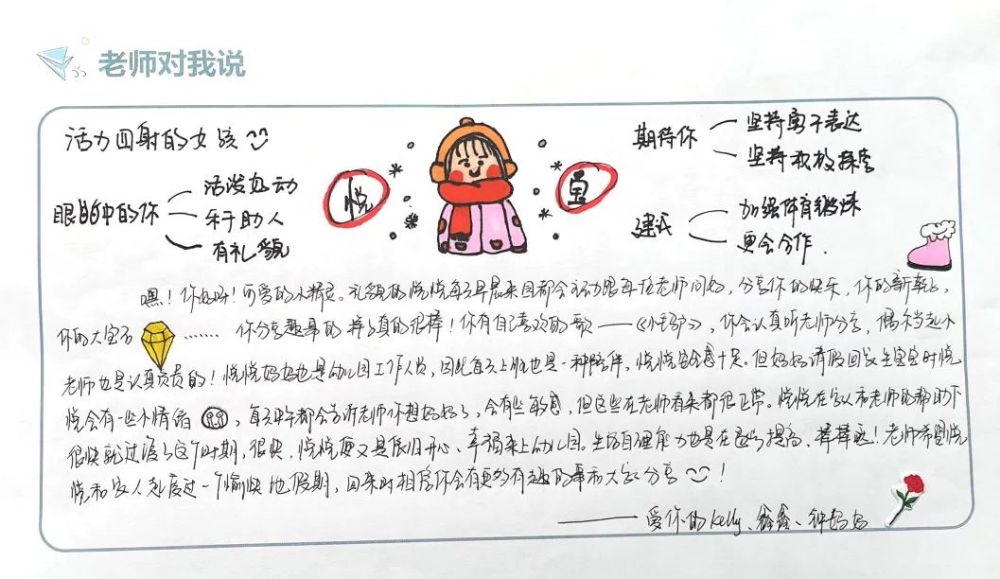 老师对我说
活力四射的女孩
眼睛中的你
活泼好动
乐于助人
有礼貌
悦
宝
期待你
坚持勇于表达
坚持积极探索
建议
加强体育锻炼
更会合作.
嘿！你好呀！可爱的小精灵。礼貌的悦悦每天早晨来园都会主动跟每位老师问好，分享你的快乐，你的新鞋子，
你的大宝石 …… 你分享趣事的样子真的很棒！你有自己喜欢的歌——《小》，你会认真听老师分享，偶尔当起小
老师也是认真负责的！悦悦妈妈也是幼儿园工作人员，因此每天上班也是一种陪伴，悦悦安全感十足。但妈妈请假回家生宝宝时悦
悦会有一些小情绪，每天早都会告诉老师你想妈妈了，会有些敏感，但这些在老师看来都很正常。悦悦在家人和老师的帮助下
很快就过渡了这个时期，很快，悦悦又是依旧开心、幸福来上幼儿园。生活自理能力也是在逐步提高，棒棒哒！老师希望悦
悦和家人一起度过一个愉快地假期，回来时相信你会有更多有趣的事和大家分享！
——爱你的Kelly、鑫鑫、钟妈妈